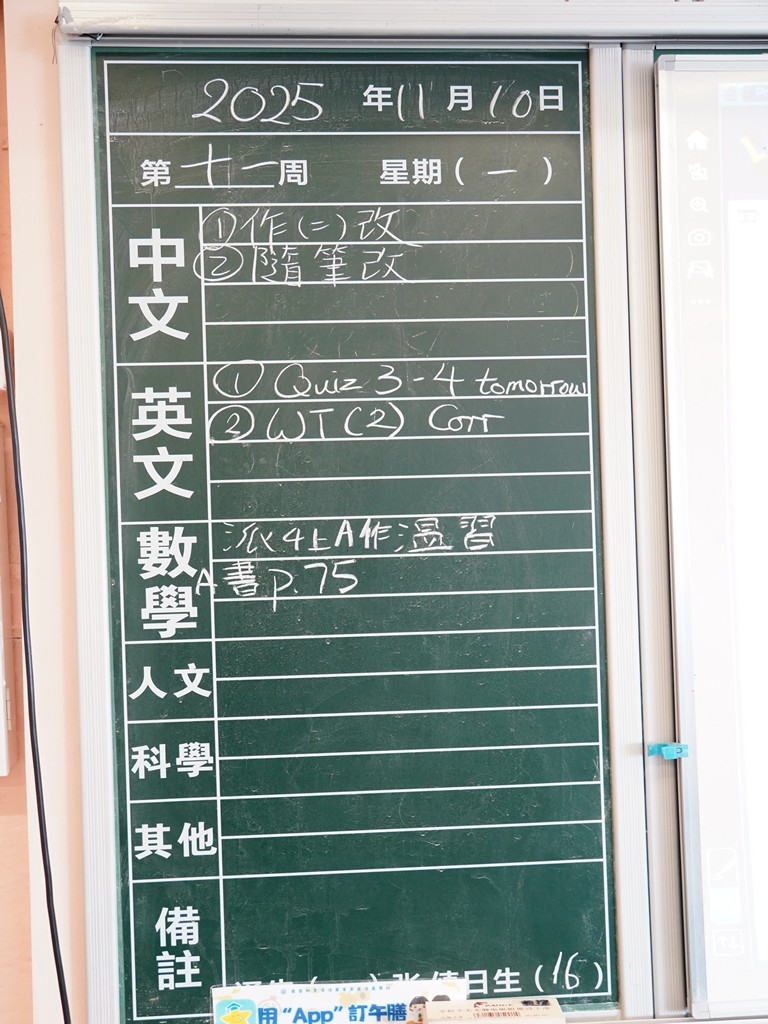 2025 年 11 月 10 日
第 十一 周 星期 ( 一 )
中文
①作(二)改
②隨筆改
英文
① Quiz 3-4 tomorrow
② WT(2) Corr
數學
派4上A作溫習
A書p.75
人文
科學
其他
備註
張 值日生 (16)
用 “App” 訂午膳